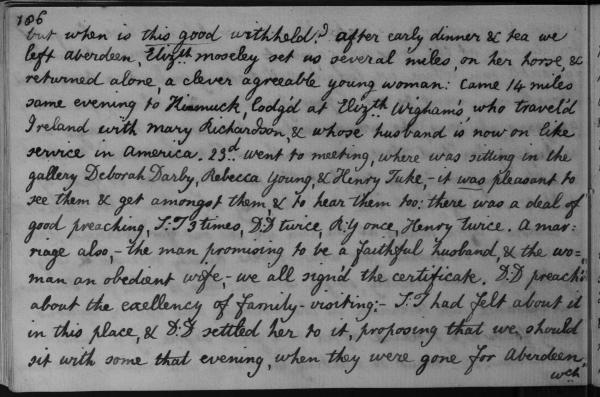 106
but when is this good withheld? after early dinner & tea we
left Aberdeen, Eliz.th moseley set us several miles, on her horse, &
returned alone, a clever agreeable young woman: came 14 miles
same evening to Kinmuck, lodg'd at Eliz.th Wigham's, who travel'd
Ireland with mary Richardson, & whose husband is now on like
service in America. 23.d went to meeting, where was sitting in the
gallery Deborah Darby, Rebecca Young, & Henry Tuke, - it was pleasant to
see them & get amongst them & to hear them too: there was a deal of
good preaching, S:T 3 times, D:D twice, R:Y once, Henry twice. A mar=
riage also, - the man promising to be a faithful husband, & the wo=
man an obedient wife, - we all sign'd the certificate. D.D preach'd
about the excellency of family-visiting: - S.T had felt about it
in this place, & D:D settled her to it, proposing that we should
sit with some that evening, when they were gone for Aberdeen,
wch